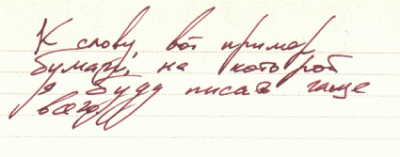 К слову, вот пример
бумаги, на которой
я буду писать чаще
всего